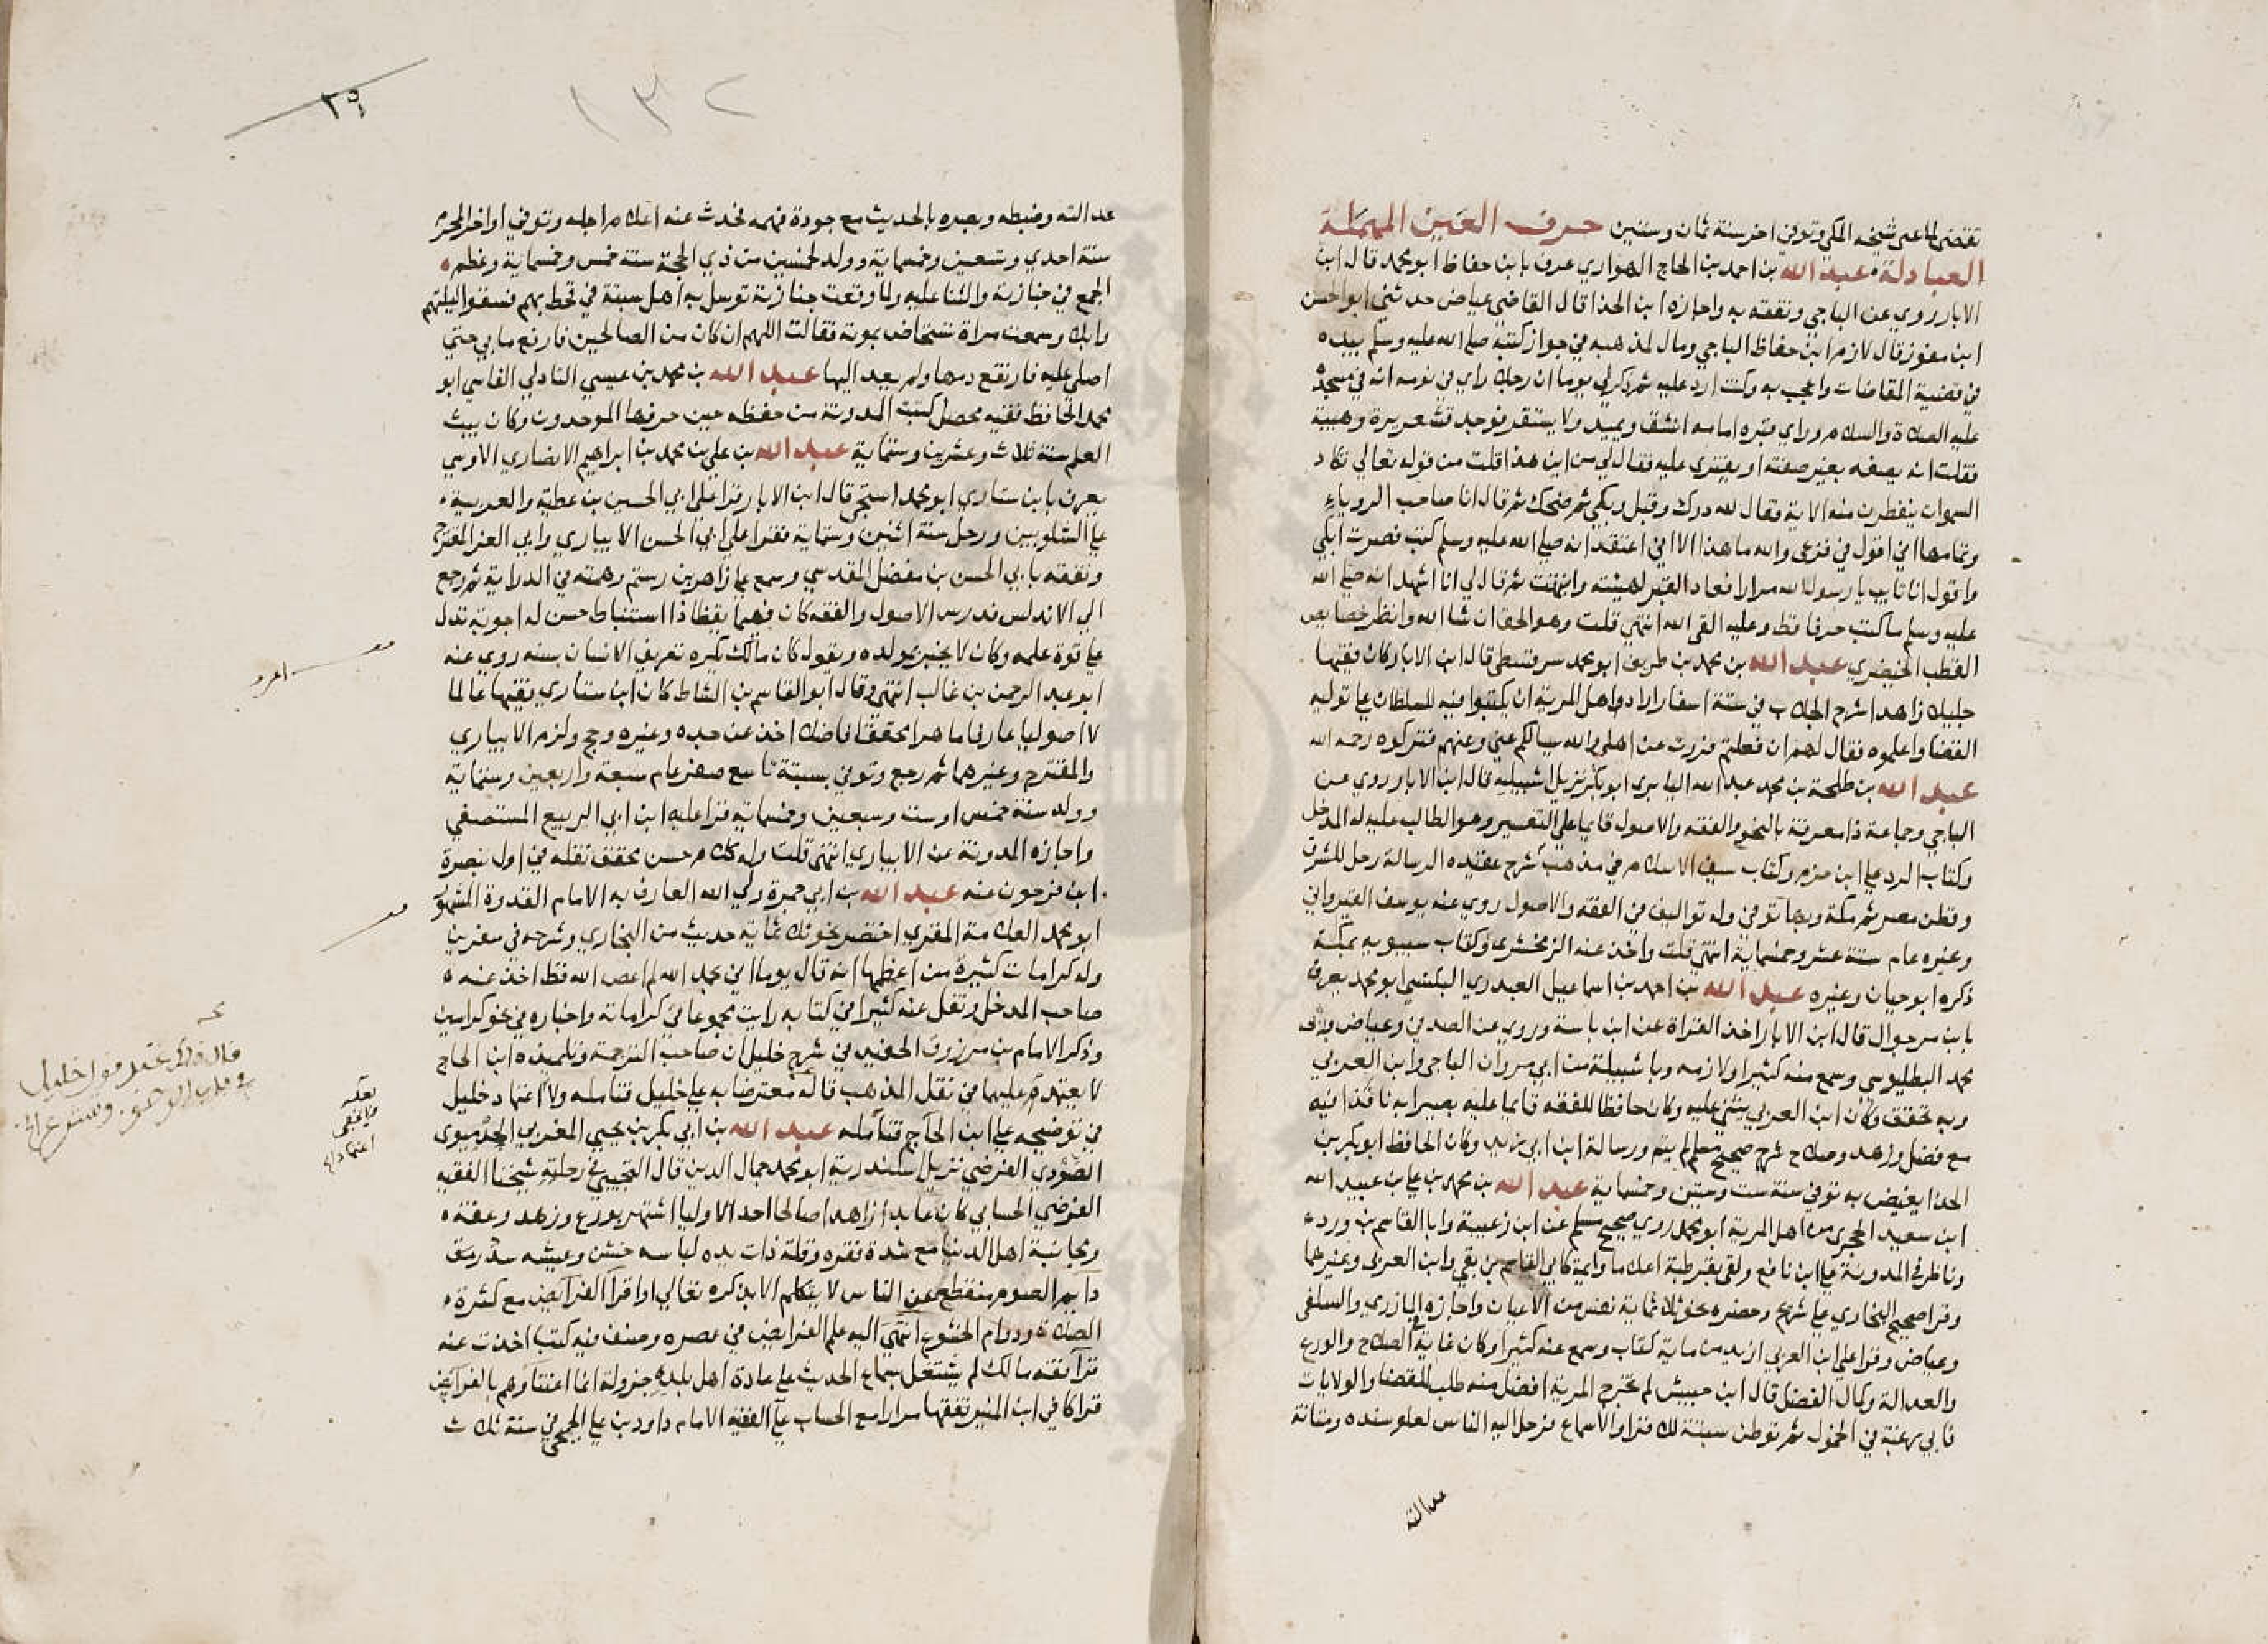 تقضى لما عمى شيخه المكي وتوفي اخر سنة ثمان وستين حرف العين المهملة
العبادلة عبد الله بن احمد بن الحاج الهواري عرف بابن حفاظ ابو محمد قال ابن
الابار روي عن الباجي وتفقه به واجازه ابن الحذا قال القاضي عياض حدثني ابو الحسن
ابن مغوز قال لازم ابن حفاظ الباجي ومال لمذهبه في جواز كتبه صلى الله عليه وسلم بيده
في قضية المقاضات واعجب به وكنت ارد عليه ثم ذكر لي يوما ان رجلا راي في نومه انه في مسجده
عليه الصلاة والسلام وراي قبره امامه انشق ويميد ولا يستقر فوجد قشعريرة وهيبة
فقلت انه يصفه بغير صفته او يفتري عليه فقال لي من اين هذا قلت من قوله تعالي تكاد
السموات يتفطرن منه الاية فقال لله درك وقبل ويكي ثم ضحك ثم قال انا صاحب الروياء
وتمامها اني اقول في فزعي والله ما هذا الا اني اعتقد انه صلي الله عليه وسلم كتب فصرت ابكي
واقول انا تايب يا رسول الله مرارا فعاد القبر لهيئته وانتهت ثم قال لي انا اشهد انه صلي الله
عليه وسلم ما كتب حرفا قط وعليه القى الله انتهي قلت وهو الحق ان شا الله وانظر خصايص
القطب الخيضري عبد الله بن محمد بن طريف ابو محمد سرقسطي قال ابن الابار كان فقيها
جليلا زاهدا شرح الجلاب في ستة اسفار اراد اهل المرية ان يكتبوا فيه للسلطان علي توليه
القضا واعلموه فقال لهم ان فعلتم فررت عن اهلي والله سيالكم عني وعنهم فتركوه رحمه الله
عبد الله بن طلحة بن محمد عبد الله اليابري ابو بكر نزيل اشبيليه قال ابن الابار روي عن
الباجي وجماعة ذا معرفة بالنحو والفقه والاصول قايما علي التفسير وهو الطالب عليه له المدخل
وكتاب الرد علي ابن حزم وكتاب سيف الاسلام في مذهب شرح عقيده الرسالة رحل للشرق
وقطن مصر ثم مكة وبها توفي وله تواليف في الفقه والاصول روي عنه يوسف القيرواني
وغيره عام ستة عشر وخمسماية انتهي قلت واخذ عنه الزمخشري كتاب سيبويه بمكة
ذكره ابو حيان وغيره عبد الله بن احمد بن اسماعيل العبدري البلنسي ابو محمد يعرف
بابن سرحوال قال ابن الابار اخذ القراة عن ابن باسة وروي عن الصدفي وعياض وابي
محمد البطليوسي وسمع منه كثيرا ولازمه وباشبيلة من ابي مروان الباجي وابن العربي
وبه تحقق وكان ابن العربي يثني عليه وكان حافظا للفقه قايما عليه بصيرا به نافذا فيه
مع فضل وزهد وصلاح شرح صحيح مسلم لم يتم ورسالة ابن ابي زيد وكان الحافظ ابو بكر بن
الحذا يغيض به توفي سنة ست وستين وخمسماية عبد الله بن محمد بن علي بن عبيد الله
ابن سعيد الحجري من اهل المرية ابو محمد روي صحيح مسلم عن ابن زغيبة وابا القاسم بن ورد
وناظر في المدونة علي ابن نافع ولقى بقرطبة اعلاما وايمة كابي القاسم بن بقي وابن العربي وغيرهما
وقرا صحيح البخاري علي شريح وحضره نحو ثلاثماية نفس من الاعيان واجازه المازري والسلفى
وعياض وقرا علي ابن العربي ازيد من ماية كتاب وسمع عنه كثيرا وكان غاية في الصلاح والورع
والعدالة وكمال الفضل قال ابن حبيش لم تخرج المرية افضل منه طلب للقضا والولايات
فابي رغبة في الخمول ثم توطن سبتة للاقرا والاسماع فرحل اليه الناس لعلو سنده ومتانة
عدالته
١٣٢
٢٩
عدالته وضبطه وبصره بالحديث مع جودة فهمه تحدث عنه اعلام اجله وتوفي اواخر المحرم
سنة احدي وتسعين وخمسماية وولد لخمسين من ذي الحجة سنة خمس وخمسماية وعظم
الجمع في جنازته والثنا عليه ولما وقعت جنازته توسل به اهل سبتة في قحط بهم فسقوا ليلتهم
وابلا وسمعت مراة تستحاض بموته فقالت اللهم ان كان من الصالحين فارفع ما بي حتي
اصلي عليه فارتفع دمها ولم يعد اليها عبد الله بن محمد بن عيسي التادلي الفاسي ابو
محمد الحافظ فقيه محصل كتبت المدونة من حفظه حين حرقها الموحدون وكان يبث
العلم سنة ثلاث وعشرين وستماية عبد الله بن علي بن محمد بن ابراهيم الانصاري الاوسي
يعرف بابن ستاري ابو محمد استجي قال ابن الابار قرا علي ابي الحسين بن عطية والعربية
علي الشلوبين ورحل سنة اثنين وستماية فقرا علي ابي الحسن الابياري وابي العز المقترح
وتفقه بابي الحسن بن مفضل المقدسي وسمع علي زاهر بن رستم وهمته في الدراية ثم رجع
الي الاندلس فدرس الاصول والفقه كان فهيما يقظا ذا استنباط حسن له اجوبة تدل
علي قوة علمه وكان لا يخبر بمولده ويقول كان مالك يكره تعريف الانسان بسنه روي عنه
ابو عبد الرحمن بن غالب انتهي وقال ابو القاسم بن الشاط كان ابن ستاري فقيها عالما
لا اصوليا عارفا ماهرا محققا فاضلا اخذ عن جده وغيره وحج ولزم الابياري
والمقترح وغيرهما ثم رجع وتوفي بسبتة تاسع صفر عام سبعة واربعين وستماية
وولد سنة خمس او ست وسبعين وخمسماية قرا عليه ابن ابي الربيع المستصفي
واجازه المدونة عن الابياري انتهي قلت وله كلام حسن محقق نقله في اول تبصرة
ابن فرحون عنه عبد الله بن ابي جمرة ولي الله العارف به الامام القدوة المشهور
ابو محمد العلامة المقري اختصر نحو ثلاثماية حديث من البخاري وشرحه في سفرين
وله كرامات كثيرة من اعظمها انه قال يوما اني بحمد الله لم اعص الله قط اخذ عنه
صاحب المدخل ونقل عنه كثيرا في كتابه رايت مجموعا في كراماته واخباره في نحو كراسين
وذكر الامام بن مرزوق الحفيد في شرح خليل ان صاحب الترجمة وتلميذه ابن الحاج
لا يعتمد عليهما في نقل المذهب قاله معترضا به علي خليل فتامله ولا اعتماد خليل
في توضيحه علي ابن الحاج فتامله عبد الله بن ابي بكر بن يحيي المغربي الجدميوي
الصودي الفرضي نزيل اسكندرية ابو محمد جمال الدين قال التجيبي في رحلته شيخنا الفقيه
الفرضي الحسابي كان عابدا زاهدا صالحا احد الاوليا اشتهر بورع وزهد وعفة
ومجانبة اهل الدنيا مع شدة فقره وقلة ذات يده لباسه خشن وعيشه سد رمق
دايم الصوم منقطع عن الناس لا يتكلم الا بذكره تعالي او اقرا الفرايض مع كثرة
الصلاة ودوام الخشوع انتهي اليه علم الفرايض في عصره وصنف فيه كتبا اخذت عنه
قرا فقه مالك لم يشتغل بسماع الحديث علي عادة اهل بلده جزولة انما اعتناوهم بالفرايض
قرا كافي ابن المنير تفقها مرارا مع الحساب علي الفقيه الامام داود بن علي الجمحي في سنة ثلاث